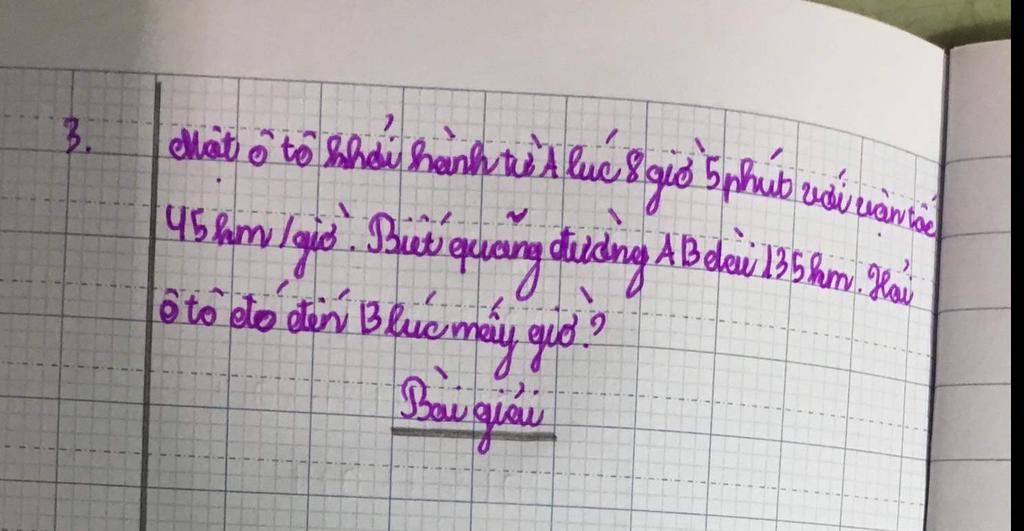 3. Một ô tô khởi hành từ A lúc 8 giờ 5 phút với vận tốc
45 km/giờ. Biết quãng đường AB dài 135 km. Hỏi
ô tô đó đến B lúc mấy giờ?
Bài giải